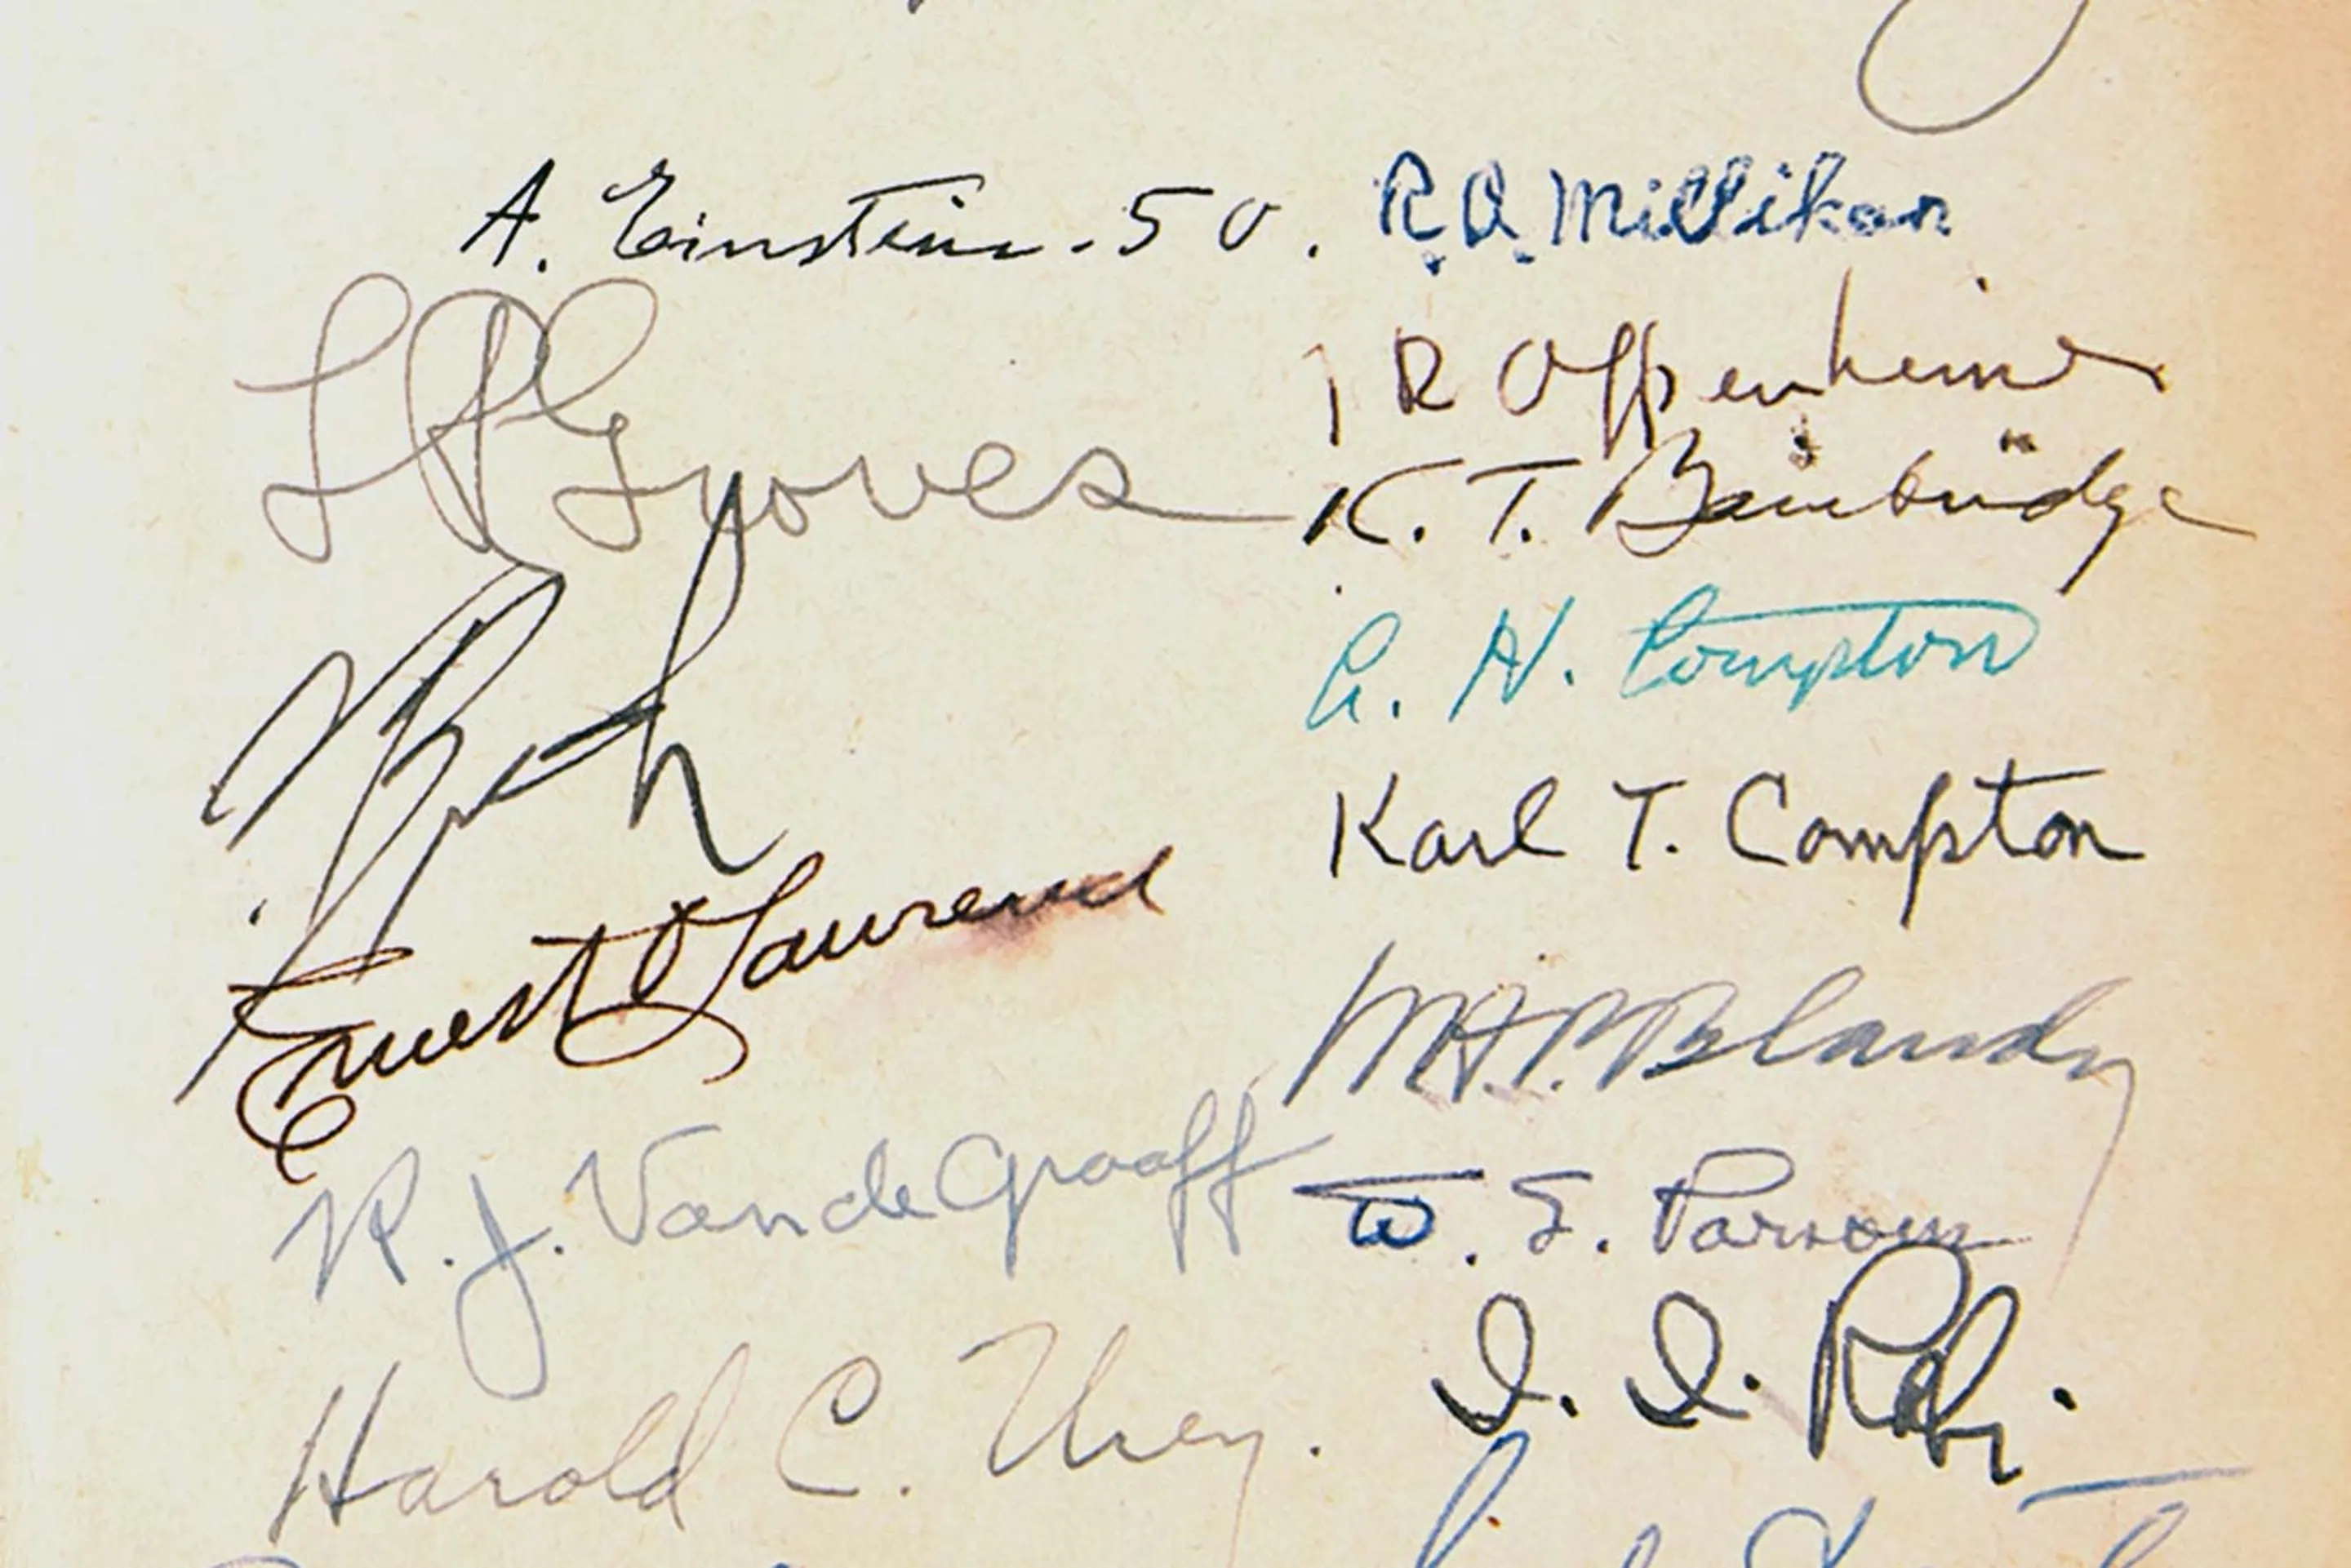 A. Einstein. 50.
R. A. Millikan
LRGroves
J R Oppenheimer
K. T. Bainbridge
A. H. Compton
Karl T. Compton
Ernest O Lawrence
W.H.P. Blandy
R. J. Van de Graaff
W. S. Parsons
I. I. Rabi.
Harold C. Urey.